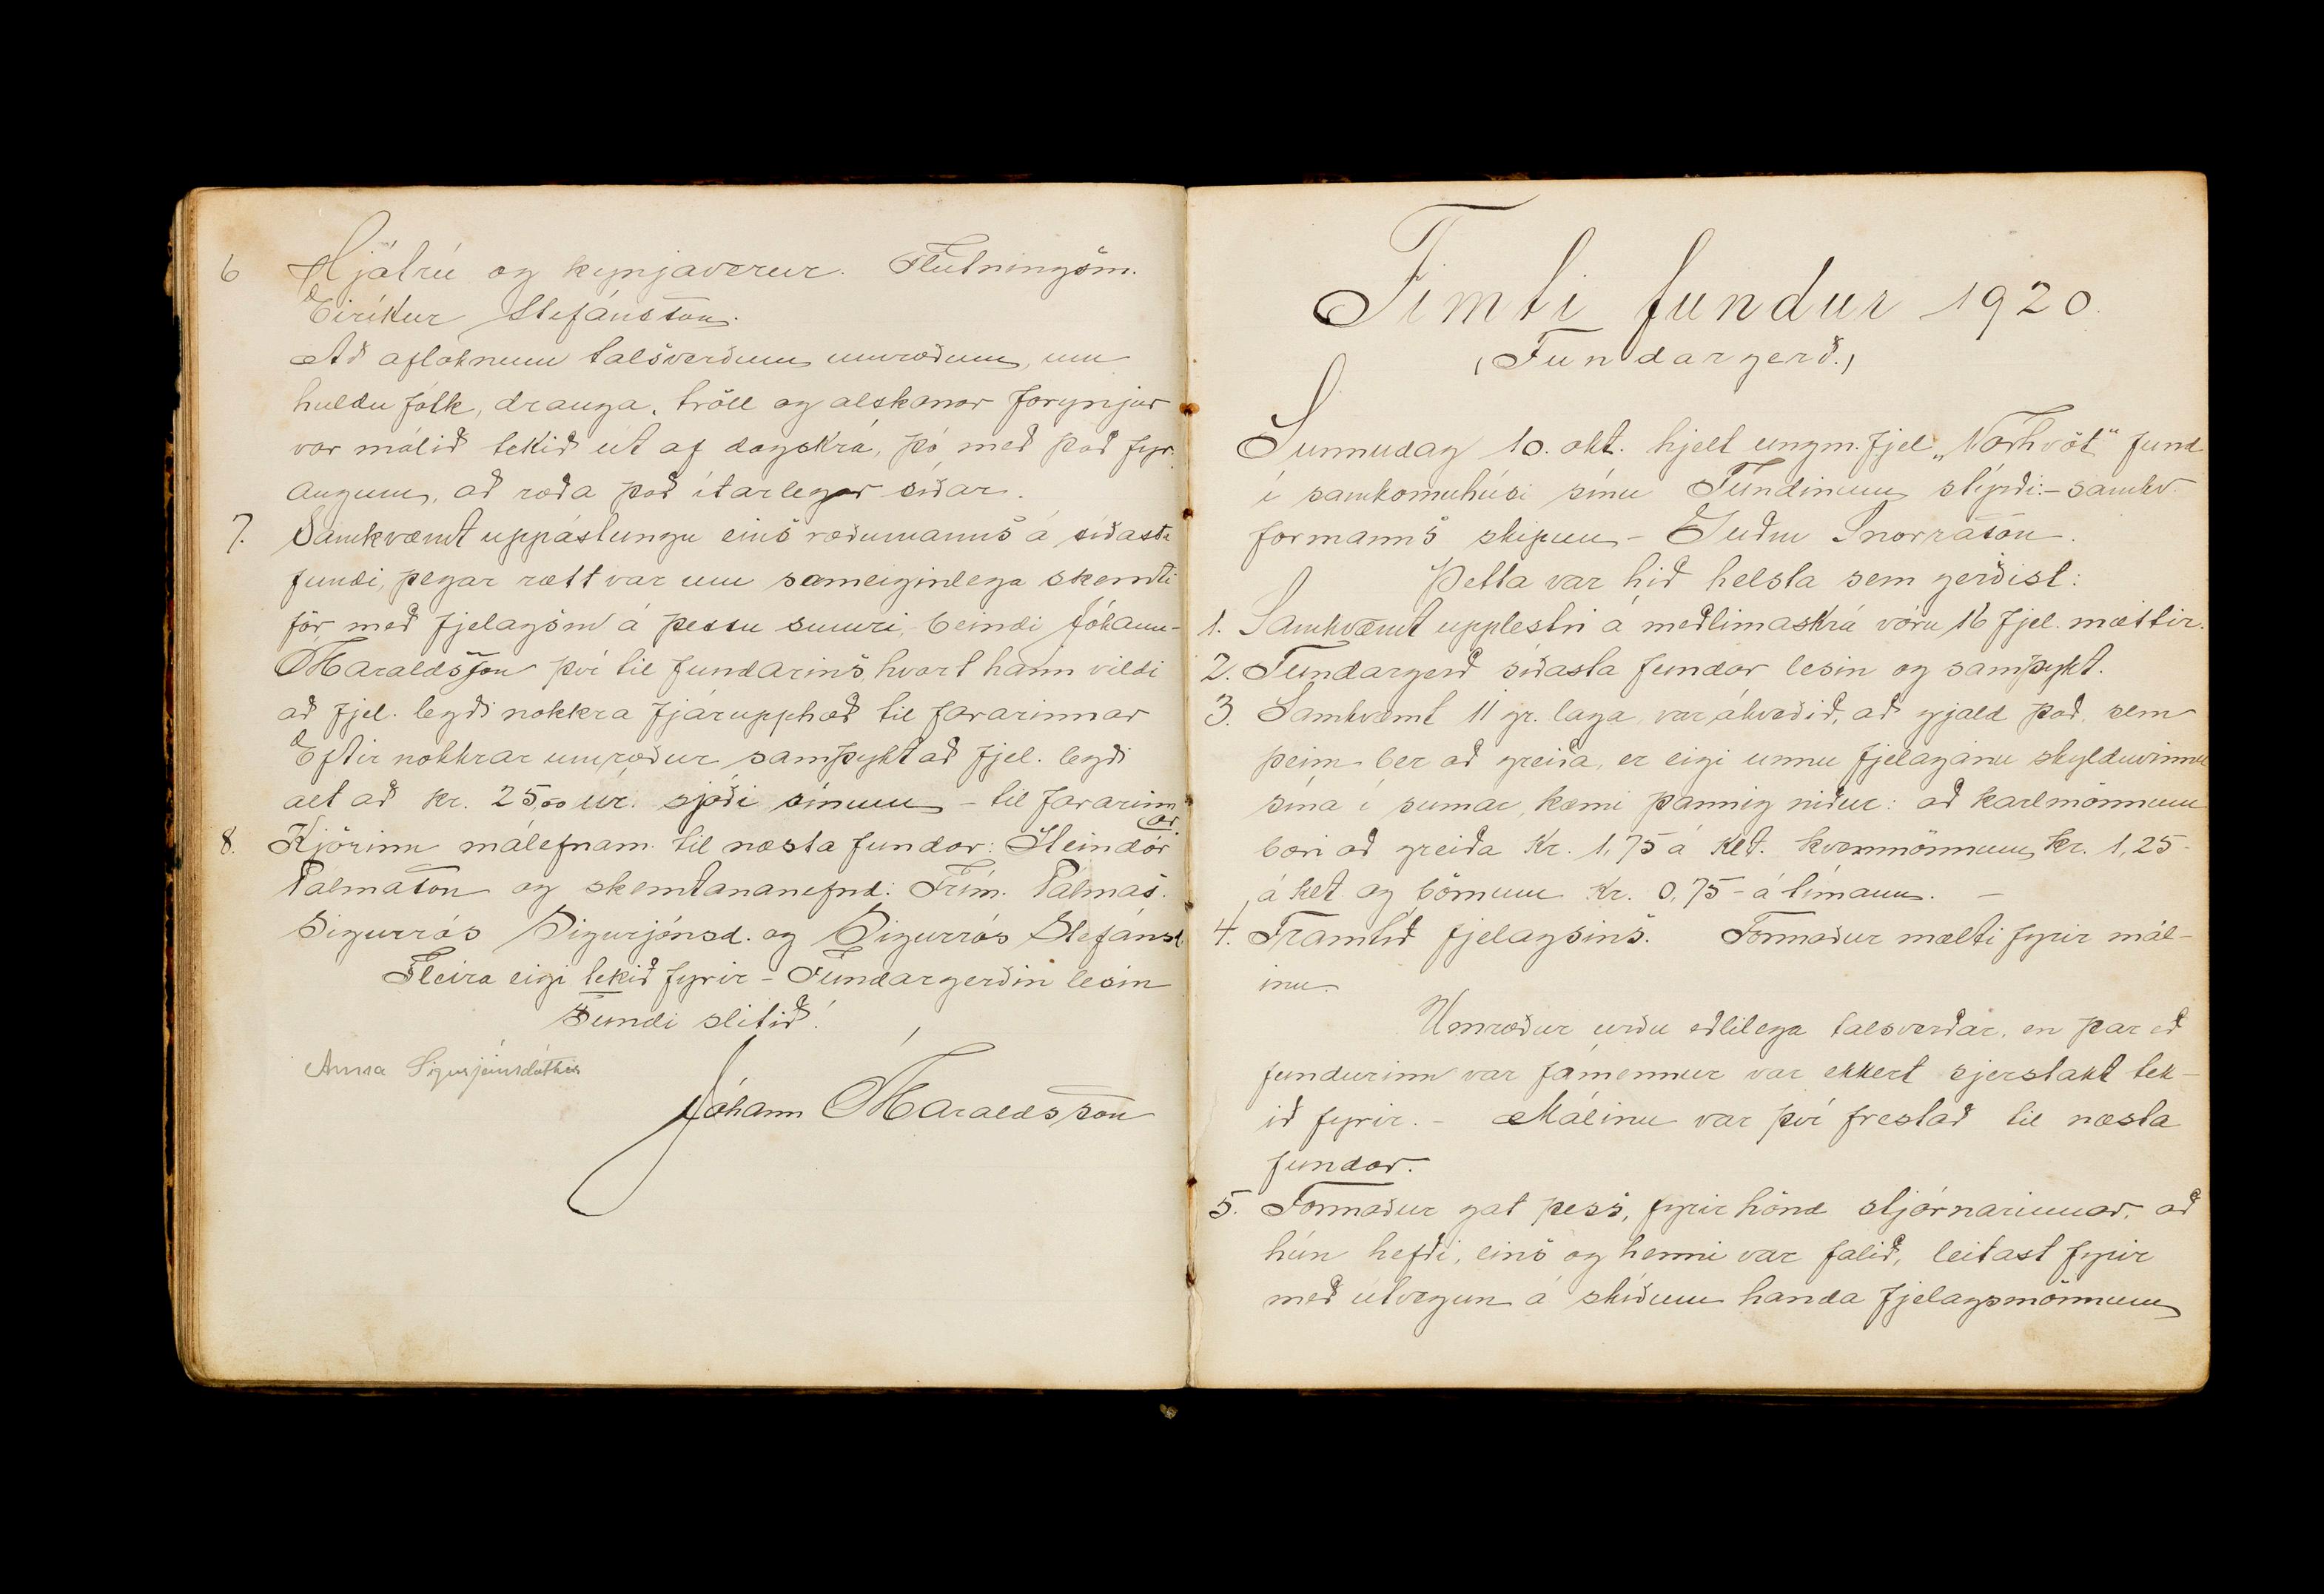 6 Hjátrú og kynjaverur. Flutningsm.
Eiríkur Stefánsson.
Að afloknum talsverðum umræðum, um
huldu fólk, drauga, tröll og alskonar forynjur
var málið tekið út af dagskrá, þó með það fyr.
augum, að ræða það ítarlegar síðar.
7. Samkvæmt uppástungu eins ræðumanns á síðasta
fundi, þegar rætt var um sameiginlega skemti
för með fjelagsm á þessu sumri, beindi Jóhann
Haraldsson því til fundarins, hvort hann vildi
að fjel. legði nokkra fjárupphæð til fararinnar
Eftir nokkrar umræður samþykt að fjel. legði
alt að kr. 25,00 úr sjóði sínum - til fararinn
ar.
8. Kjörinn málefnam. til næsta fundar: Steindór
Pálmason og skemtananefnd: Frím. Pálmas.
Sigurrós Sigurjónsd. og Sigurrós Stefánsd.
Fleira eigi tekið fyrir - Fundargerðin lesin
Fundi slitið!
Anna Sigurjónsdóttir
Jóhann Haraldsson
Fimti fundur 1920.
(Fundargerð.)
Sunnudag 10. okt. hjelt ungm.fjel. „Norðhvöt" fund
í samkomuhúsi sínu Fundinum stýrði: - samkv.
formanns skipun - Guðm Snorrason.
Þetta var hið helsta sem gerðist:
1. Samkvæmt upplestri á meðlimaskrá vóru 16 fjel. mættir.
2. Fundargerð síðasta fundar lesin og samþykt.
3. Samkvæmt 11 gr. laga, var ákveðið, að gjald það, sem
þeim ber að greiða, er eigi unnu fjelaginu skylduvinnu
sína í sumar, kæmi þannig niður: að karlmönnum
bæri að greiða kr. 1,75 á klt. kvenmönnum kr. 1,25-
á klt og börnum kr. 0,75 - á tímann. -
4. Framtíð fjelagsins. Formaður mælti fyrir mál-
inu.
Umræður urðu eðlilega talsverðar, en þar eð
fundurinn var fámennur var ekkert sjerstakt tek-
ið fyrir. - Málinu var því frestað til næsta
fundar.
5. Formaður gat þess, fyrir hönd stjórnarinnar, að
hún hefði, eins og henni var falið, leitast fyrir
með útvegun á skíðum handa fjelagsmönnum